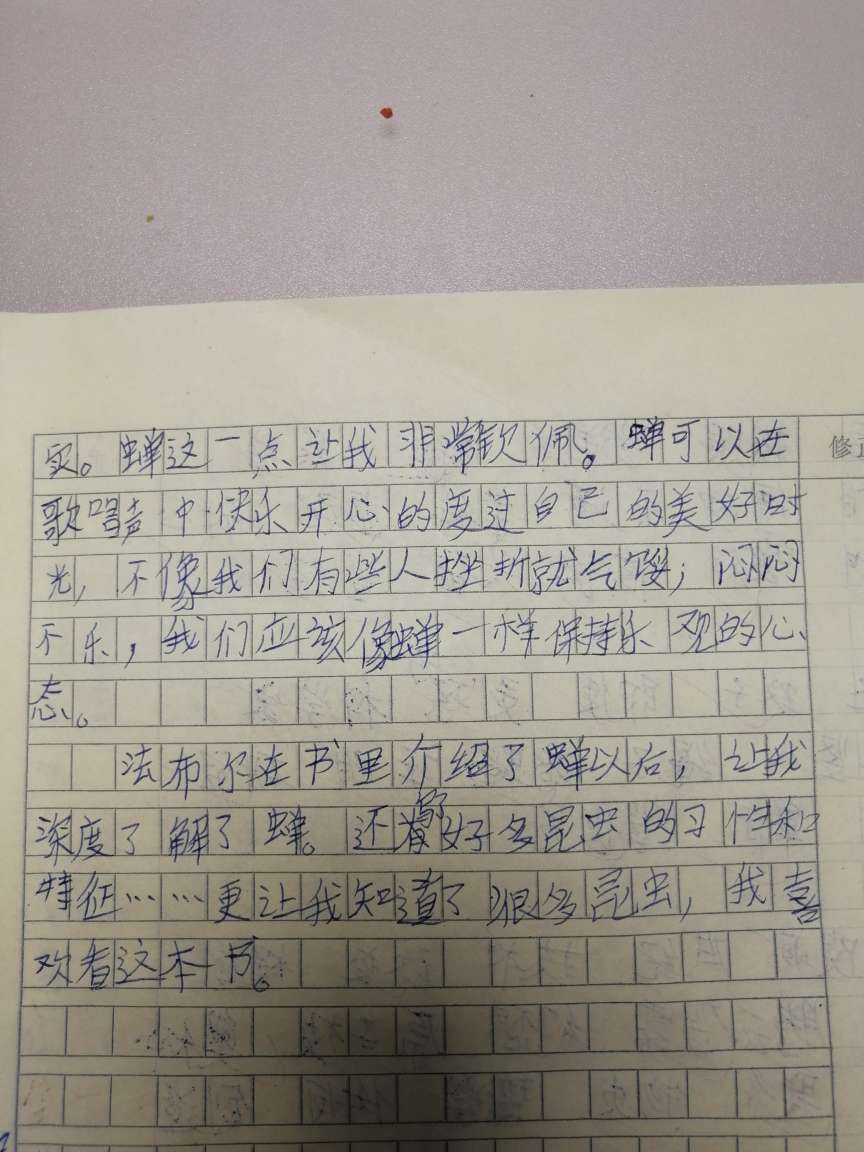 实。蝉这一点让我非常钦佩。蝉可以在
歌唱声中快乐开心的度过自己的美好时
光，不像我们有些人挫折就气馁；闷闷
不乐，我们应该像蝉一样保持乐观的心
态。
法布尔在书里介绍了蝉以后，让我
深度了解了蝉。还有好多昆虫的习性和
特征……更让我知道了很多昆虫，我喜
欢看这本书。
修正